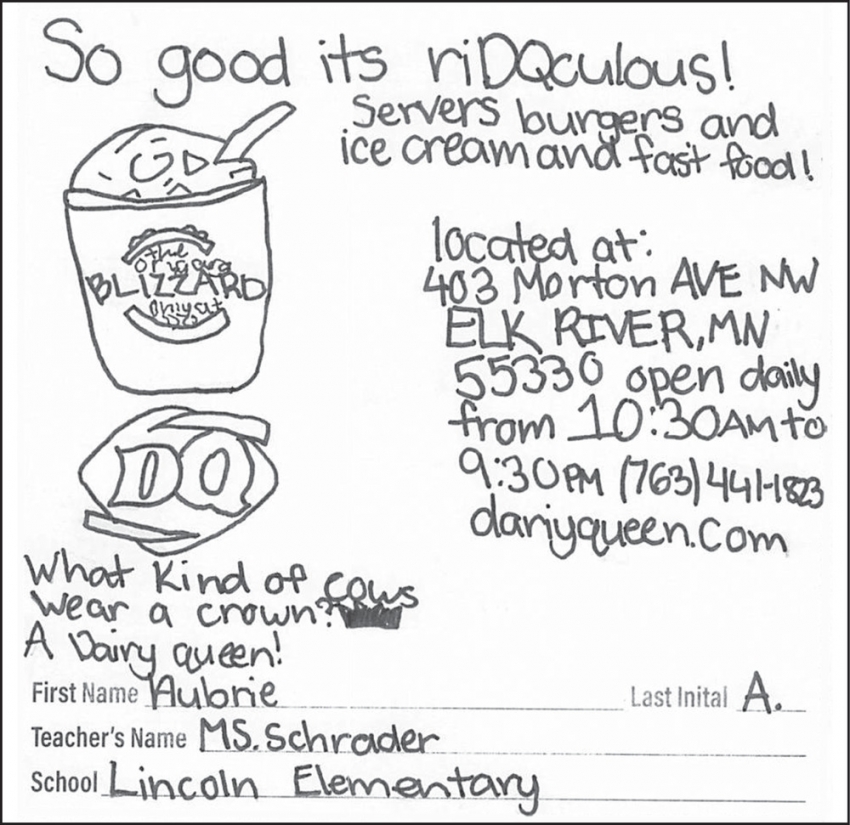 So good its riDQculous!
Servers burgers and
ice cream and fast food!
located at:
403 Morton AVE NW
ELK RIVER, MN
55330 open daily
from 10:30AM to
9:30PM (763) 441-1823
dariyqueen.com
the
BLIZZARD
Only at
DQ
DQ
What Kind of cows
wear a crown?
A Dairy queen!
First Name Aubrie Last Inital A.
Teacher's Name MS. Schrader
School Lincoln Elementary